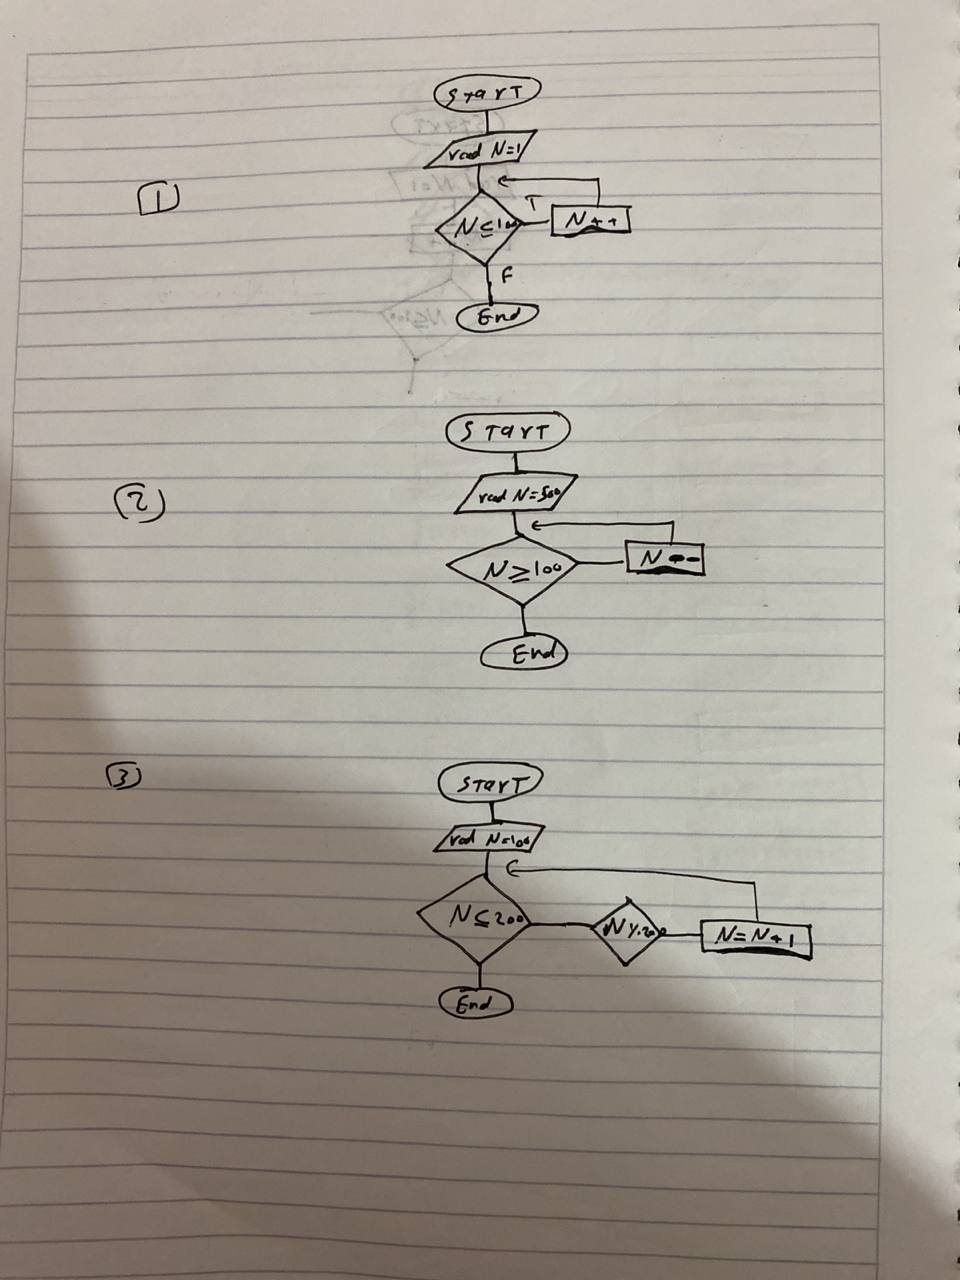 START
read N=1
1
N≤100
T
N++
F
End
START
read N=500
2
N≥100
N--
End
3
START
read N=100
N≤200
N%2==0
N=N+1
End